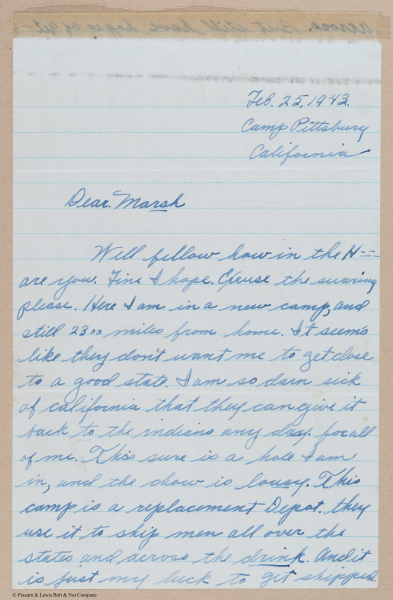 across. But still have hope of get-
Feb. 25, 1943.
Camp Pittsburg
California
Dear Marsh
Well fellow how in the H---
are you. Fine I hope. Excuse the swearing
please. Here I am in a new camp, and
still 2300 miles from home. It seems
like they don't want me to get close
to a good state. I am so darn sick
of california that they can give it
back to the indians any day for all
of me. This sure is a hole I am
in, and the chow is lousy. This
camp is a replacement Depot. they
use it to ship men all over the
states and across the drink. And it
is just my luck to get shipped
© Pheoenix & Lewis Bolt & Nut Company